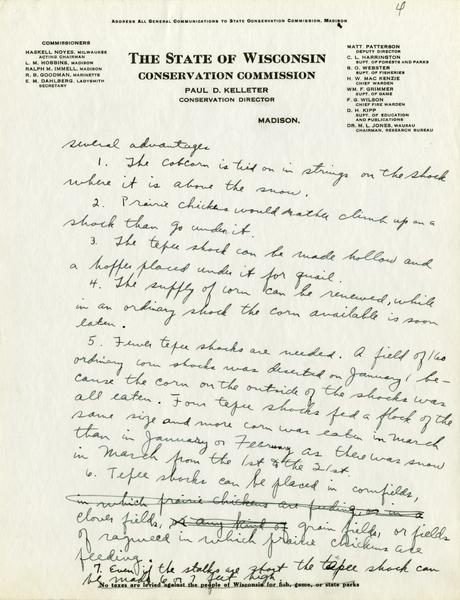 4
ADDRESS ALL GENERAL COMMUNICATIONS TO STATE CONSERVATION COMMISSION, MADISON
COMMISSIONERS
HASKELL NOYES, MILWAUKEE
ACTING CHAIRMAN
L. M. HOBBINS, MADISON
RALPH M. IMMELL, MADISON
R. B. GOODMAN, MARINETTE
E. M. DAHLBERG, LADYSMITH
SECRETARY
THE STATE OF WISCONSIN
CONSERVATION COMMISSION
PAUL D. KELLETER
CONSERVATION DIRECTOR
MADISON.
MATT. PATTERSON
DEPUTY DIRECTOR
C. L. HARRINGTON
SUPT. OF FORESTS AND PARKS
B. O. WEBSTER
SUPT. OF FISHERIES
H. W. MAC KENZIE
CHIEF WARDEN
WM. F. GRIMMER
SUPT. OF GAME
F. G. WILSON
CHIEF FIRE WARDEN
D. H. KIPP
SUPT. OF EDUCATION
AND PUBLICATIONS
DR. M. L. JONES, WAUSAU
CHAIRMAN, RESEARCH BUREAU
several advantages
1. The cobcorn is tied on in strings on the shock
where it is above the snow.
2. Prairie chickens would rather climb up on a
shock than go under it.
3. The tepee shock can be made hollow and
a hopper placed under it for quail.
4. The supply of corn can be renewed, while
in an ordinary shock the corn available is soon
eaten.
5. Fewer tepee shocks are needed. A field of 160
ordinary corn shocks was deserted on January 1 be-
cause the corn on the outside of the shocks was
all eaten. Four tepee shocks fed a flock of the
same size and more corn was eaten in March
than in January or February as there was snow
in March from the 1st to the 21st.
6. Tepee shocks can be placed in cornfields,
in which prairie chickens are feeding, or in a
clover fields, or any kind of grain fields, or fields
of ragweed in which prairie chickens are
feeding.
7. Even if the stalks are short the tepee shock can
be made 6 or 7 feet high
No taxes are levied against the people of Wisconsin for fish, game, or state parks